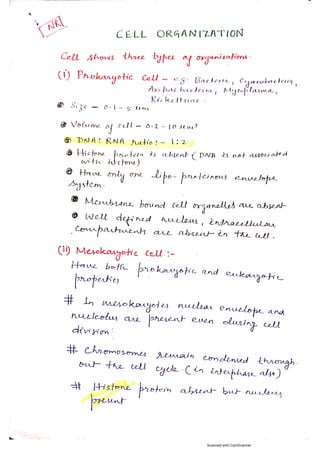 NR
CELL ORGANIZATION
Cell shows three types of organisations.
(i) Prokaryotic Cell - eg. Bacteria, Cyanobacteria,
Archaebacteria, Mycoplasma,
Rickettsiae.
Size - 0.1 - 5 um
Volume of cell - 0.2 - 10 um³
DNA : RNA ratio :- 1:2
Histone protein is absent (DNA is not associated
with histone).
Have only one lipo-proteinous envelope
system.
Membrane bound cell organelles are absent
Well defined nucleus, intracellular
compartments are absent in the cell.
(ii) Mesokaryotic Cell :-
Have both prokaryotic and eukaryotic
properties
# In mesokaryotes nuclear envelope and
nucleolus are present even during cell
division.
# Chromosomes remain condensed through-
out the cell cycle (in interphase also)
# Histone protein absent but nucleus
present
Scanned with CamScanner